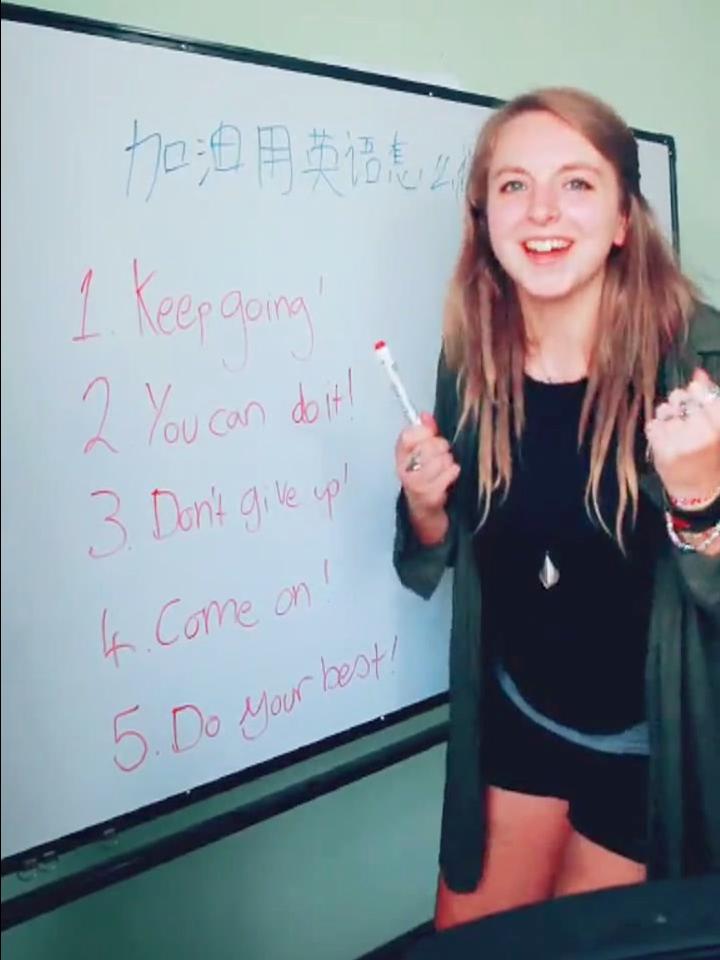 加油用英语怎么
1. Keep going!
2 You can do it!
3. Don't give up!
4. Come on!
5. Do your best!